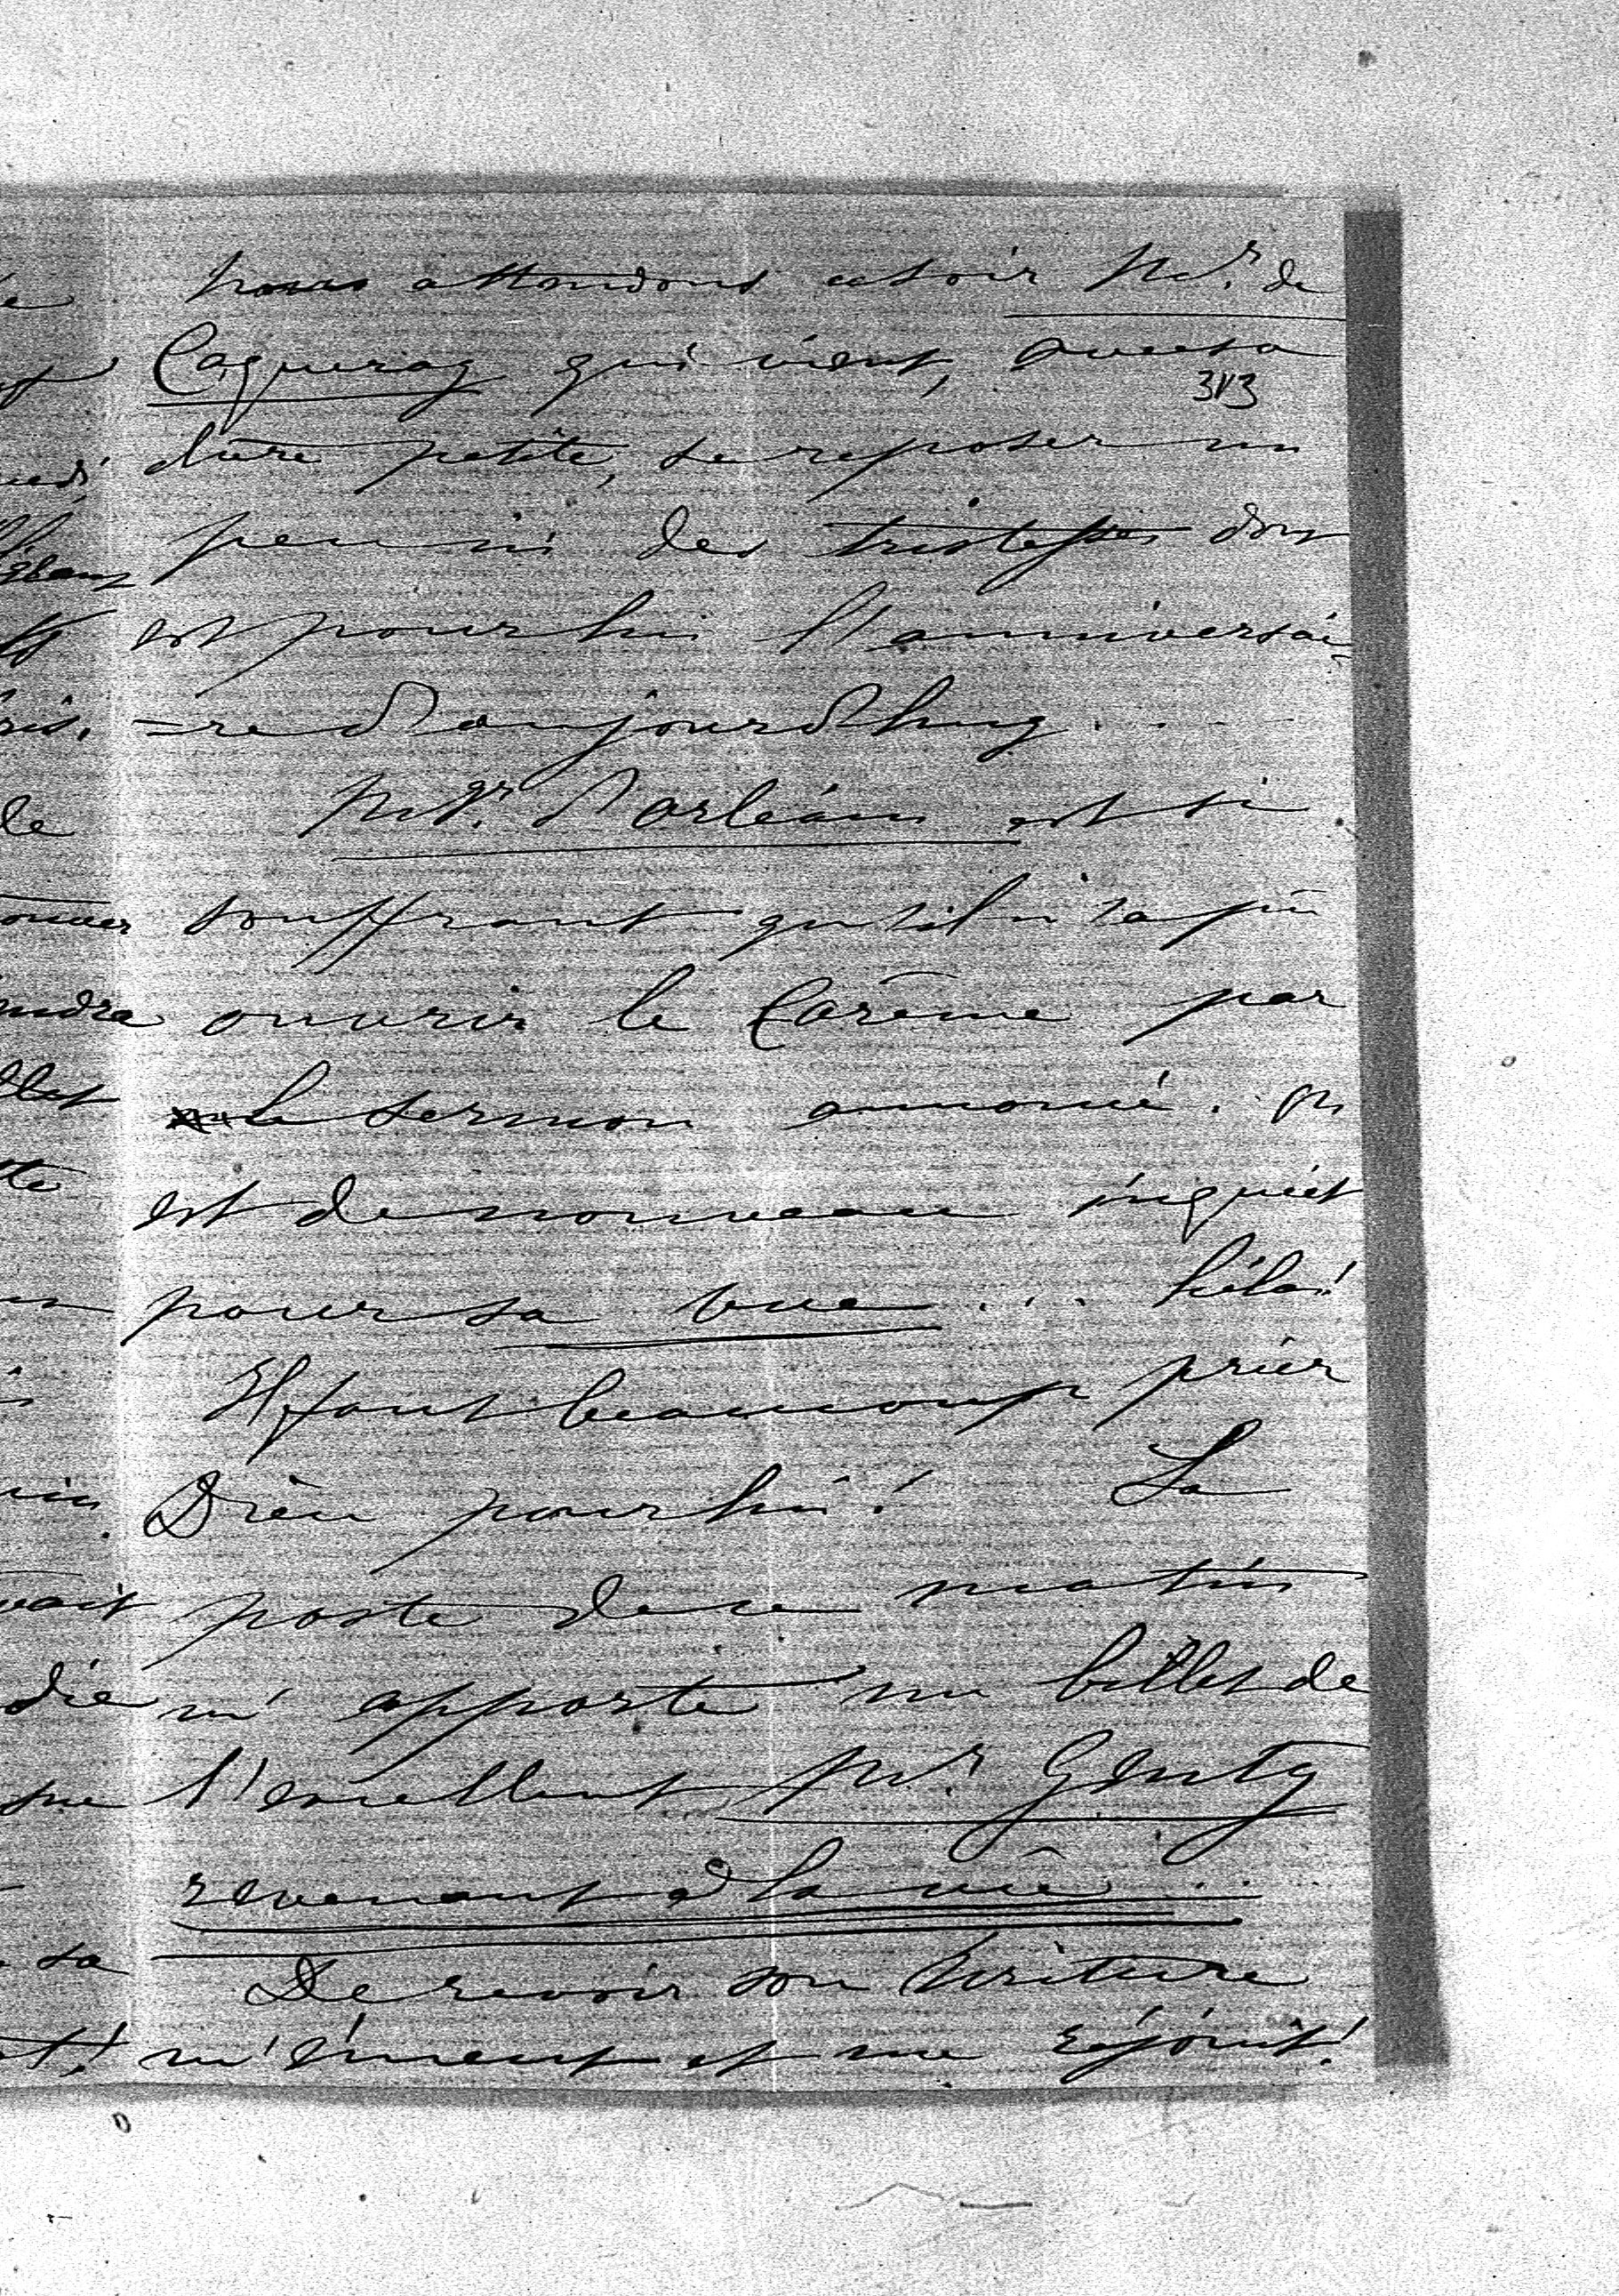 nous attendons ce soir Mr. de
Caqueray qui vient, avec sa
313
chère petite, se reposer un
peu ici des tristesses dont
est pour lui l'anniversai
=re d'aujourd'huy....
Mgr. d'orléans est si
souffrant qu'il n'a pû
ouvrir le Carême par
le sermon annoncé. on
est de nouveau inquiet
pour sa vue... hélas!
Il faut beaucoup prier
Dieu pour lui! La
poste de ce matin
m'apporte un billet de
l'excellent Mr Genty
revenant à la vie...
De revoir son Ecriture
m'émeut et me réjouit!